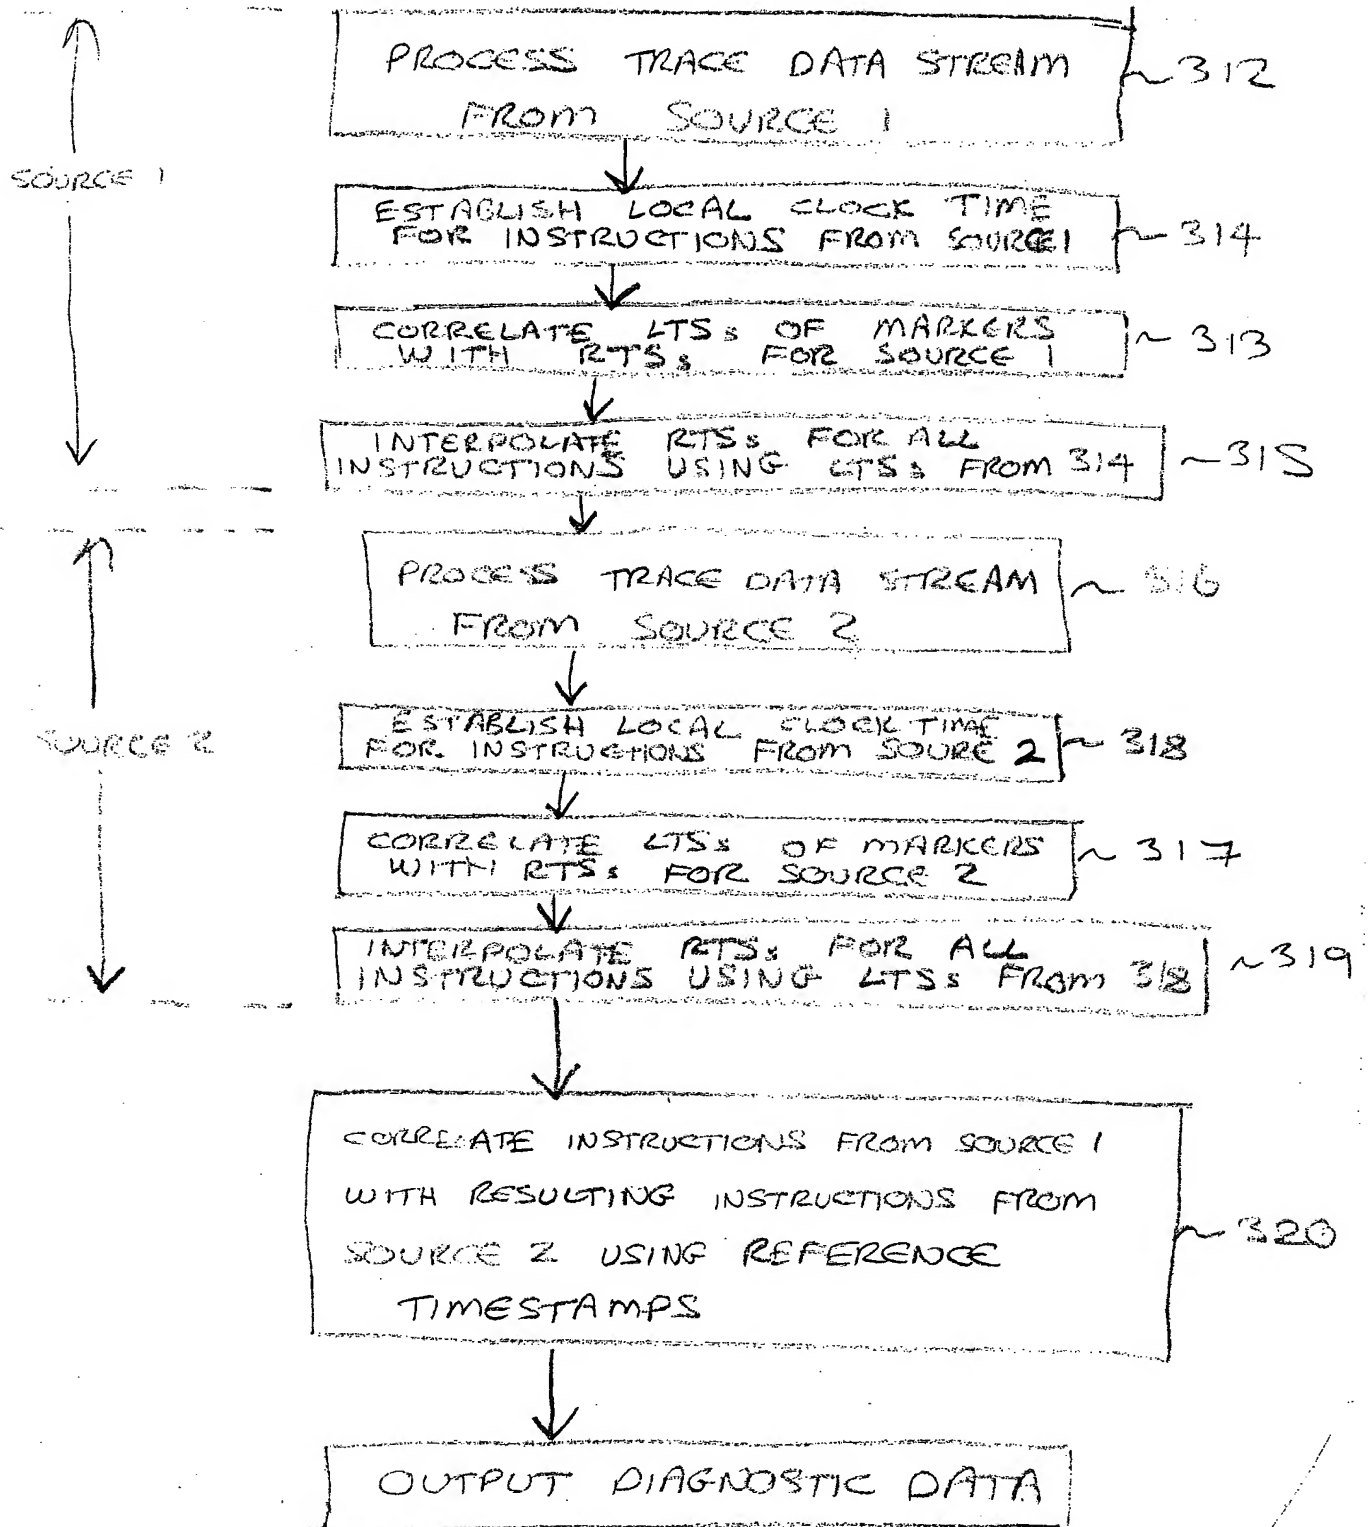 PROCESS TRACE DATA STREAM
FROM SOURCE 1
~312
SOURCE 1
ESTABLISH LOCAL CLOCK TIME
FOR INSTRUCTIONS FROM SOURCE 1
~314
CORRELATE LTSs OF MARKERS
WITH RTSs FOR SOURCE 1
~313
INTERPOLATE RTSs FOR ALL
INSTRUCTIONS USING LTSs FROM 314
~315
PROCESS TRACE DATA STREAM
FROM SOURCE 2
~316
SOURCE 2
ESTABLISH LOCAL CLOCK TIME
FOR INSTRUCTIONS FROM SOURE 2
~318
CORRELATE LTSs OF MARKERS
WITH RTSs FOR SOURCE 2
~317
INTERPOLATE RTSs FOR ALL
INSTRUCTIONS USING LTSs FROM 318
~319
CORRELATE INSTRUCTIONS FROM SOURCE 1
WITH RESULTING INSTRUCTIONS FROM
SOURCE 2 USING REFERENCE
TIMESTAMPS
~320
OUTPUT DIAGNOSTIC DATA